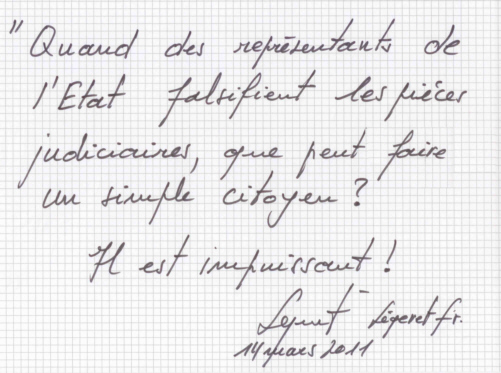 "Quand des représentants de
l'Etat falsifient les pièces
judiciaires, que peut faire
un simple citoyen ?
Il est impuissant !
Légeret fr.
14 mars 2011